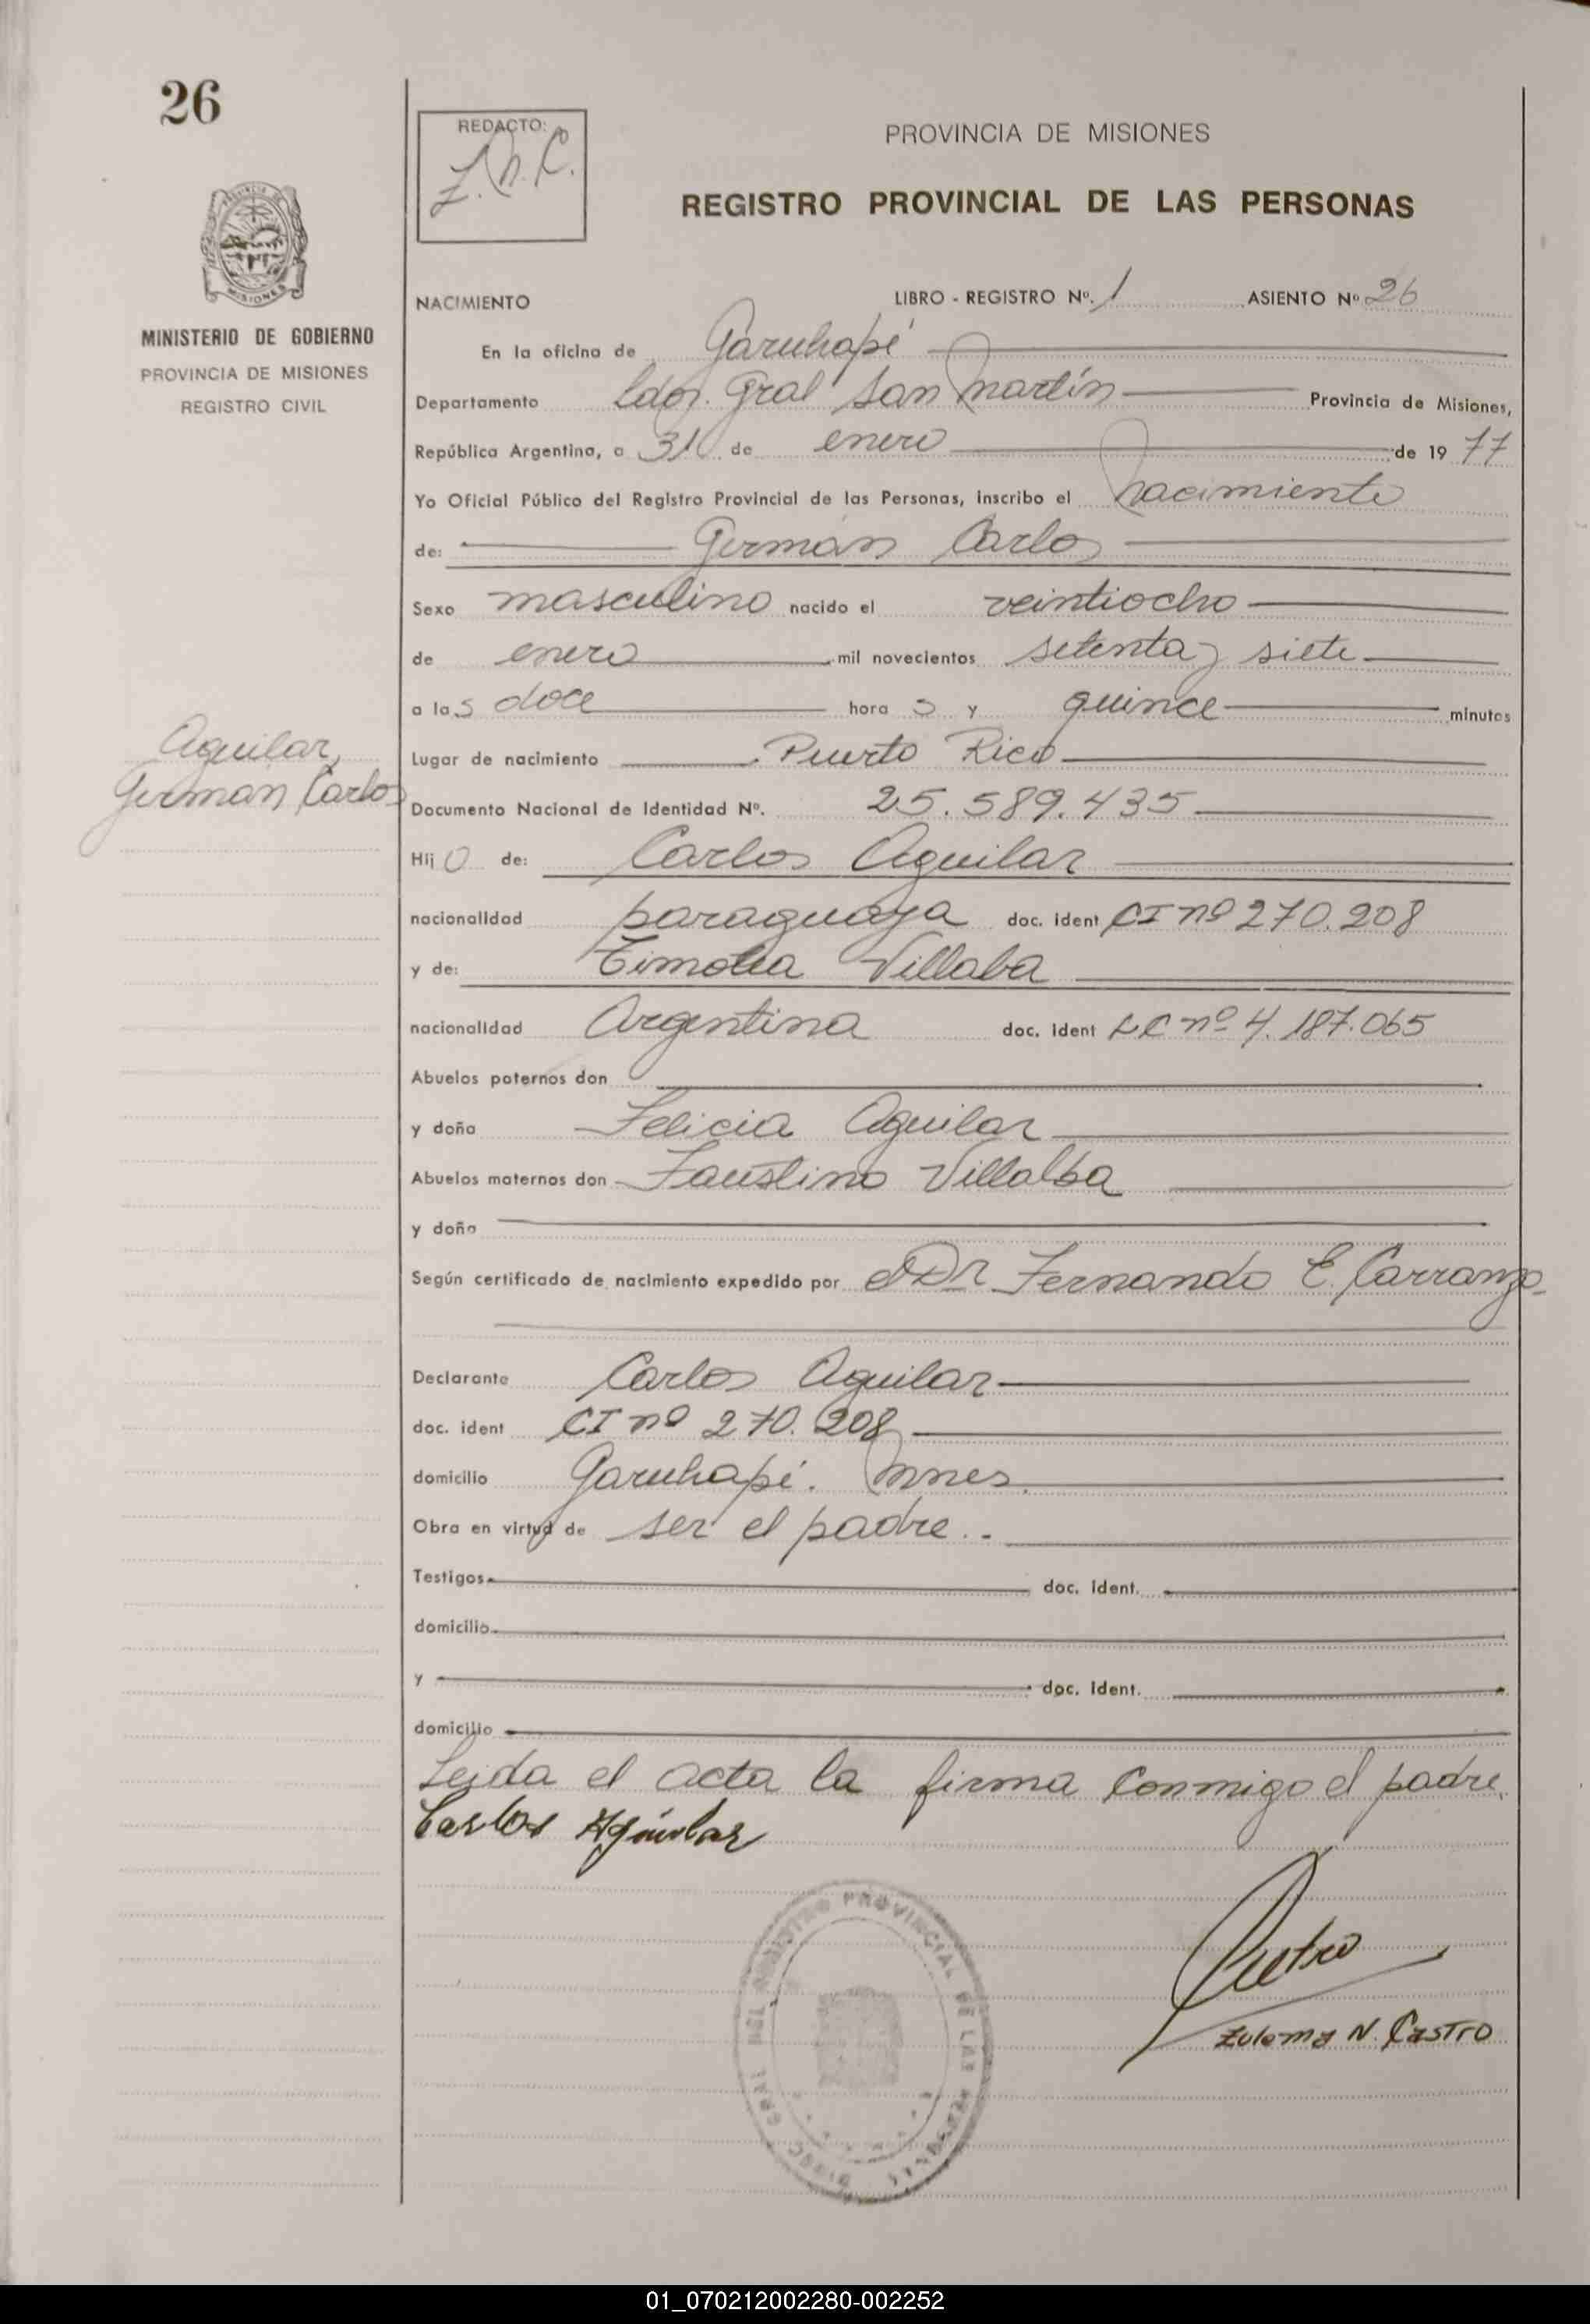 26
REDACTO:
Z.N.C.
PROVINCIA DE MISIONES
REGISTRO PROVINCIAL DE LAS PERSONAS
MISIONES
MINISTERIO DE GOBIERNO
PROVINCIA DE MISIONES
REGISTRO CIVIL
NACIMIENTO LIBRO - REGISTRO Nº. 1 ASIENTO Nº 26
En la oficina de Garuhapé
Departamento Ldor. Gral San Martín Provincia de Misiones,
República Argentina, a 31 de enero de 1977
Yo Oficial Público del Registro Provincial de las Personas, inscribo el nacimiento
de: Germán Carlos
Sexo masculino nacido el veintiocho
de enero mil novecientos setenta y siete
a las doce horas y quince minutos
Aguilar,
German Carlos
Lugar de nacimiento Puerto Rico
Documento Nacional de Identidad Nº. 25.589.435
Hijo de: Carlos Aguilar
nacionalidad paraguaya doc. ident CI nº 270.208
y de: Timotea Villaba
nacionalidad Argentina doc. ident LC nº 4.187.065
Abuelos paternos don
y doña Felicia Aguilar
Abuelos maternos don Faustino Villalba
y doña
Según certificado de nacimiento expedido por Dr Fernando E. Carranza
Declarante Carlos Aguilar
doc. ident CI nº 270.208
domicilio Garuhapé. Mnes.
Obra en virtud de ser el padre..
Testigos doc. ident.
domicilio
y doc. ident.
domicilio
Leida el acta la firma conmigo el padre.
Carlos Aguilar
DIREC. GRAL. DEL REGISTRO PROVINCIAL DE LAS PERSONAS
Castro
Zulema N. Castro
01_070212002280-002252